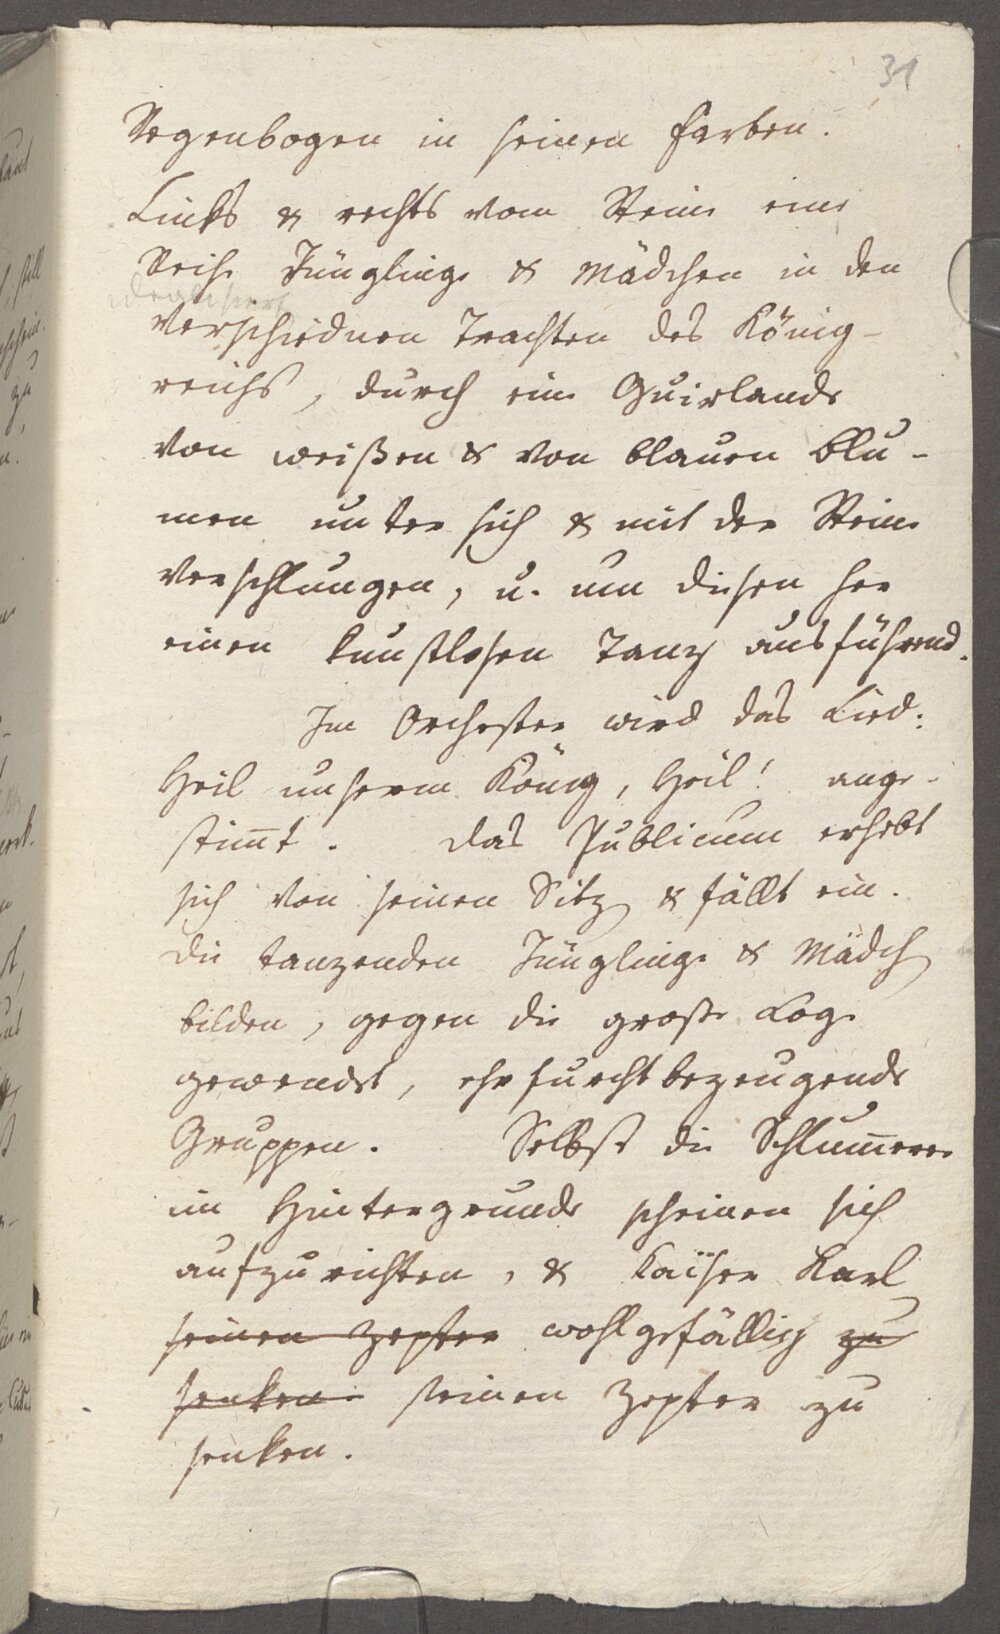 31
Regenbogen in seinen Farben.
Links & rechts vom Steine eine
Reihe Jünglinge & Mädchen in den
verschiednen Trachten des König-
reichs, durch eine Guirlande
von weißen & von blauen Blu-
men unter sich & mit der Steine
verschlungen, u. um diesen her
einen kunstlosen Tanz ausführend.
Im Orchester wird das Lied:
Heil unserm König, Heil! ange-
stim̅t. Das Publicum erhebt
sich von seinen Sitz & fällt ein.
Die tanzenden Jünglinge & Mädch
bilden, gegen die große Loge
gewendet, ehrfurchtbezeugende
Gruppen. Selbst die Schlum̅erer
im Hintergrunde scheinen sich
aufzurichten, & Kaiser Karl
seinen Zepter wohlgefällig zu
senken. seinen Zepter zu
senken.